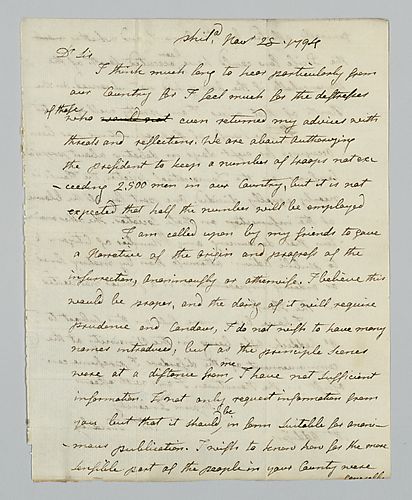 Philad Nov 28 1794
Dr Sir
I think much long to hear particularly from
our Country for I feel much for the distresses
of those
who would not even returned my advices with
threats and reflections. We are about Authorizing
the president to keep a number of troops not ex-
-ceeding 2,500 men in our Country, but it is not
expected that half the number will be employed
I am called upon by my friends to gave
a Narative of the Origin and progress of the
insurrection, Ananimously or otherwise. I believe this
would be proper, and the doing of it will require
prudence and Candour, I do not wish to have many
names introduced, but as the principle scenes
were at a distance from me, I have not sufficient
information. I not only request information from
you but that it should be in form Suitable for anoni-
-mous publication. I wish to know how far the more
sensible part of the people in your County were